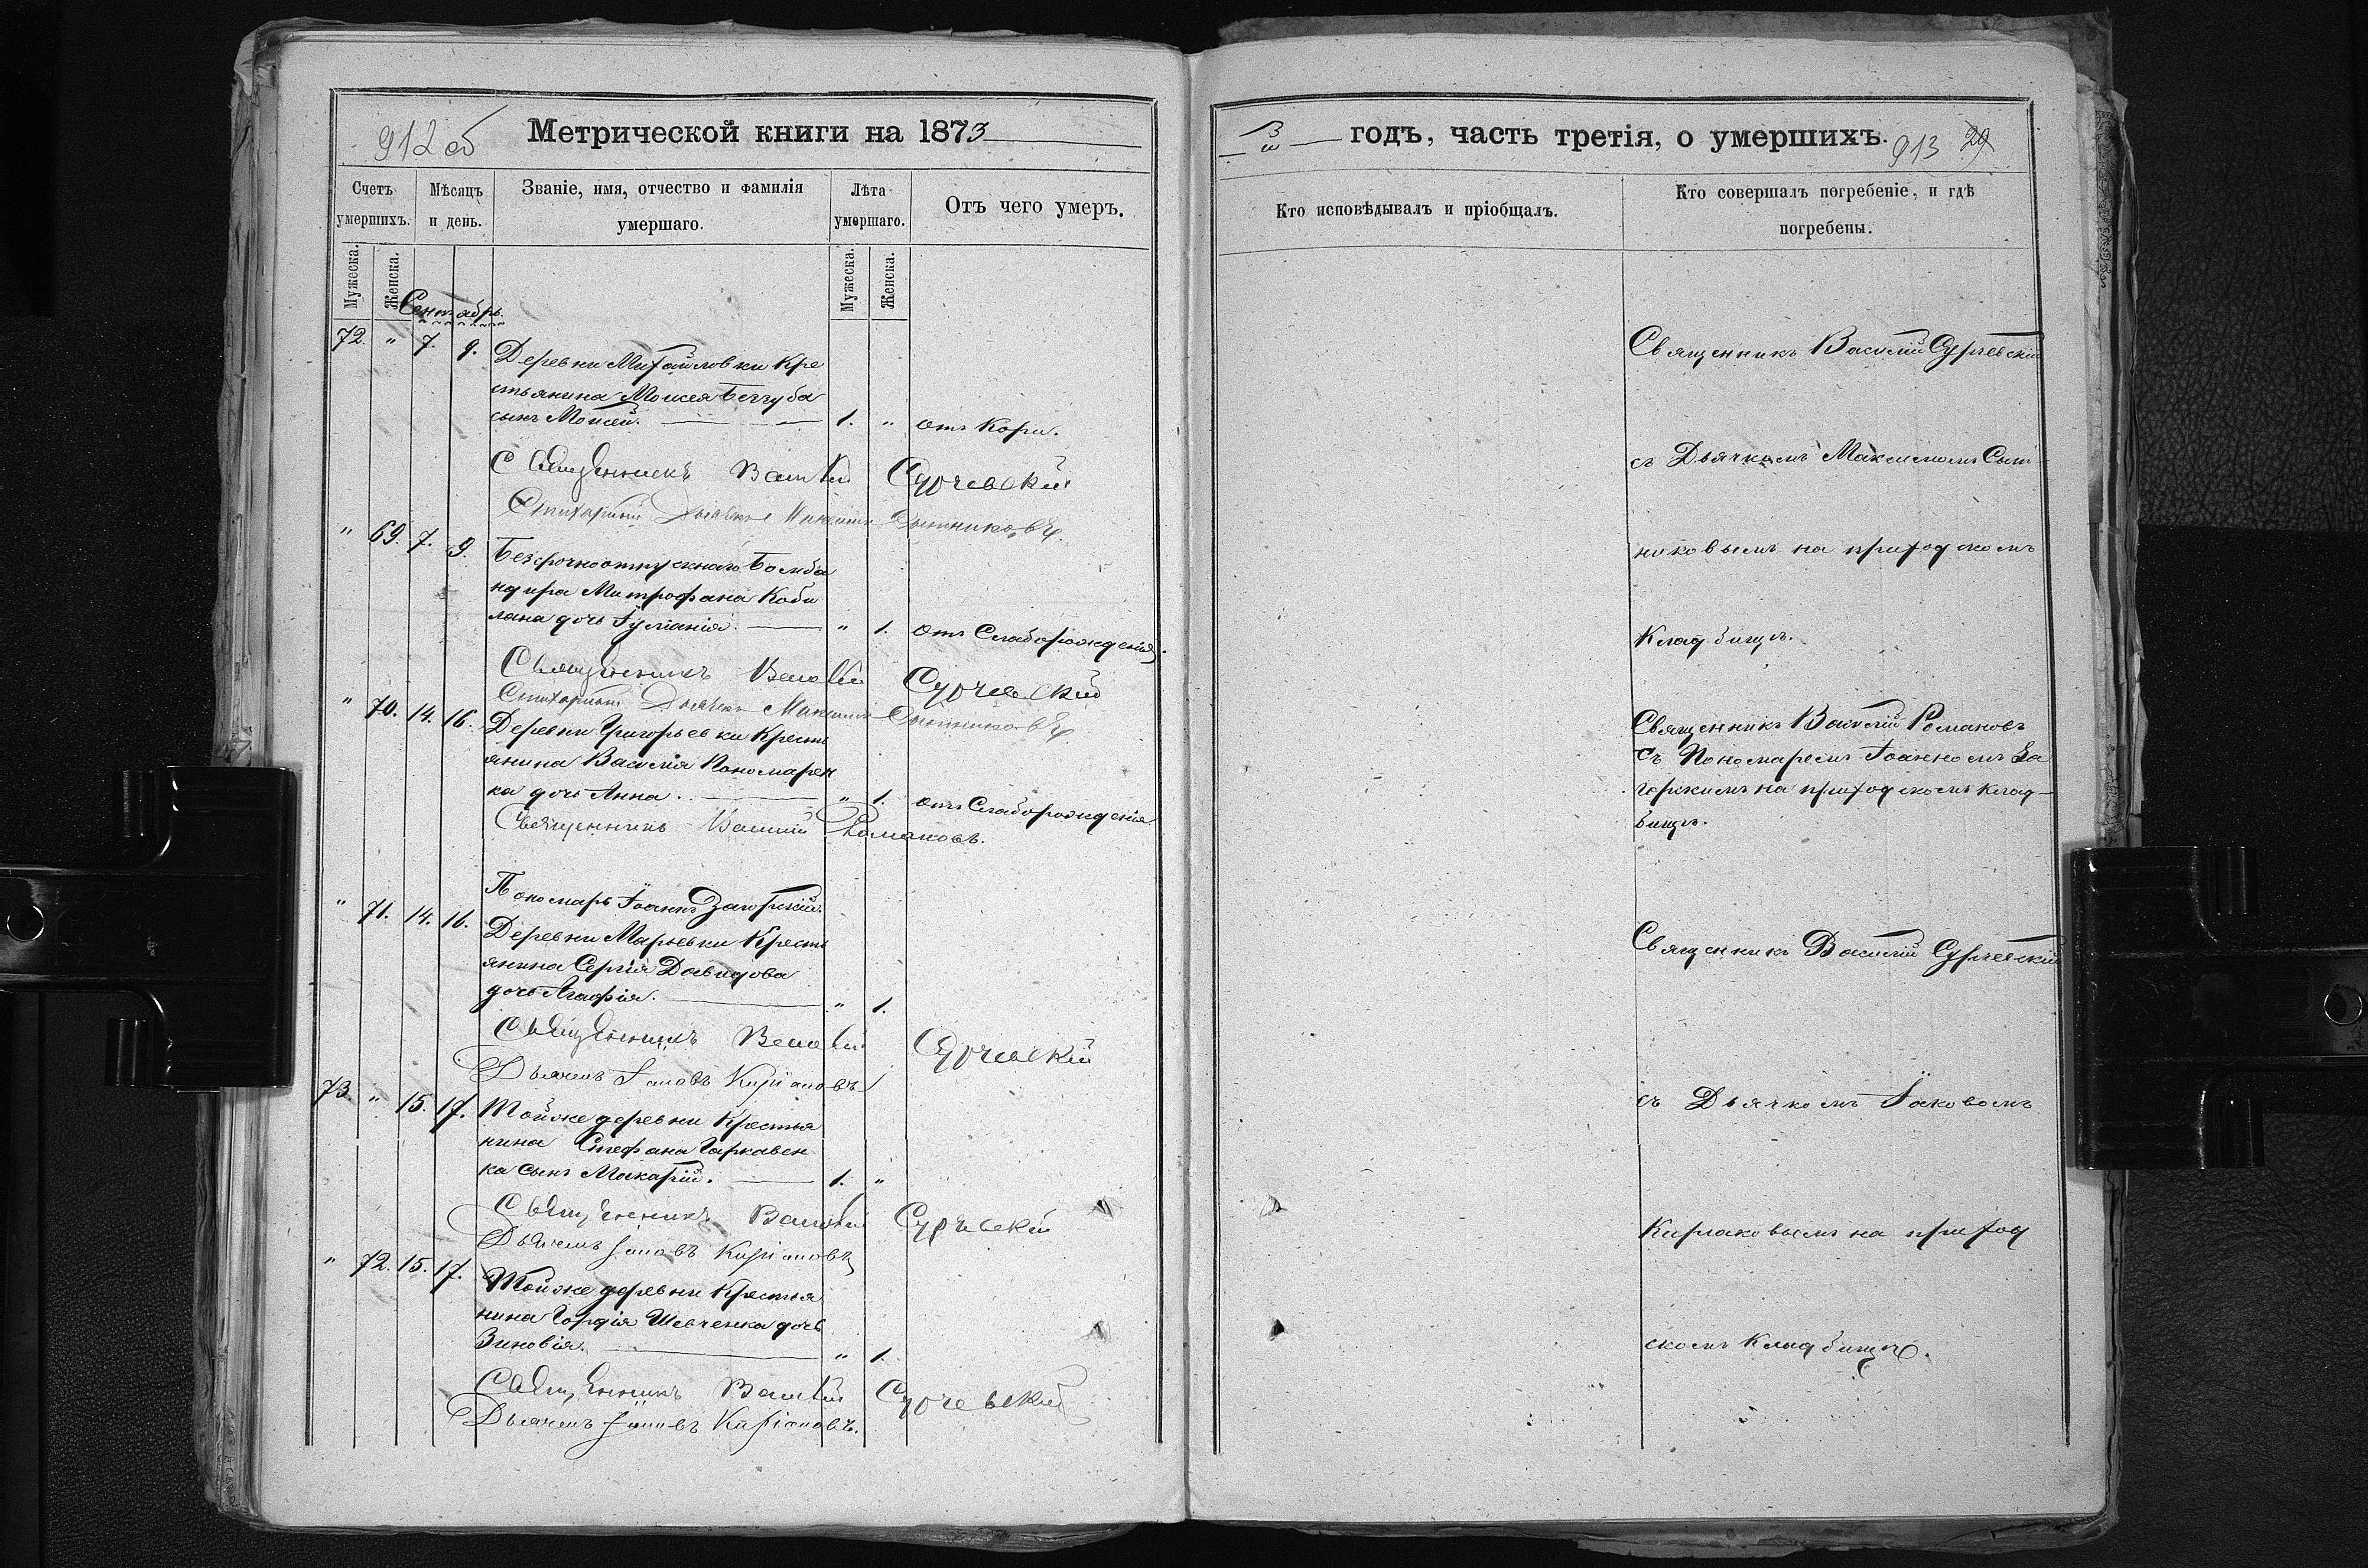 912 об
Метрической книги на 1873
Счетъ умершихъ.
Мѣсяцъ и день.
Званіе, имя, отчество и фамилія умершаго.
Лѣта умершаго.
Отъ чего умеръ.
Мужеска.
Женска.
Мужеска.
Женска.
Сентябрь.
72. " 7. 9. Деревни Михайловки Кре
стьянина Моисея
сынъ Моисей. 1. " отъ Кори.
Священникъ Василій Сурчевскій
Стихарный Дьячекъ Максимъ Сытниковъ
" 69. 7. 9. Безсрочноотпускнаго Бомба
ндира Митрофана Коби
лана дочь Іуліанія. " 1. отъ Слаборожденія.
Священникъ Василій Сурчевскій
Стихарный Дьячекъ Максимъ Сытниковъ
" 70. 14. 16. Деревни Григорьевки Кресть
янина Василія Пономарен
ка дочь Анна. " 1. отъ Слаборожденія.
Священникъ Василій Романовъ.
Пономарь Іоаннъ Загорскій.
" 71. 14. 16. Деревни Марьевки Кресть
янина Сергія Давидова
дочь Агафія. " 1.
Священникъ Василій Сурчевскій
Дьячекъ Іаковъ Киріаковъ
73. " 15. 17. Тойже деревни Крестья
нина Стефана Гаркавен
ка сынъ Макарій. 1. "
Священникъ Василій Сурчевскій
Дьячекъ Іаковъ Киріаковъ
" 72. 15. 17. Тойже деревни Крестья
нина Гордія Шевченка дочь
Зиновія. " 1.
Священникъ Василій Сурчевскій
Дьячекъ Іаковъ Киріаковъ.
3 годъ, часть третія, о умершихъ.
913 29
Кто исповѣдывалъ и пріобщалъ.
Кто совершалъ погребеніе, и гдѣ
погребены.
Священникъ Василій Сурчевскій
съ Дьячкомъ Максимомъ Сыт
никовымъ на приходскомъ
Кладбищѣ.
Священникъ Василій Романовъ
съ Пономаремъ Іоанномъ За
горскимъ на приходскомъ клад-
бищѣ.
Священникъ Василій Сурчевскій
съ Дьячкомъ Іаковомъ
Киріаковымъ на приход
скомъ Кладбищѣ.